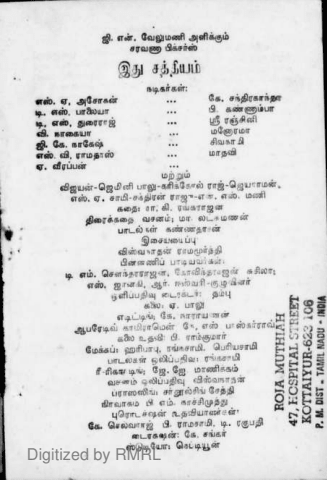 ஜி. என். வேலுமணி அளிக்கும்
சரவணா பிக்சர்ஸ்
இது சத்தியம்
நடிகர்கள்:
எஸ். ஏ, அசோகன் ... கே. சந்திரகாந்தா
டி. எஸ். பாலையா ... பி. கண்ணாம்பா
டி, எஸ், துரைராஜ் ... ஸ்ரீ ரஞ்சினி
வி. நாகையா ... மனோரமா
ஜி. கே. காகேஷ் ... சிவகாமி
எஸ். வி, ராமதாஸ் ... மாதவி
ஏ. வீரப்பன் ...
மற்றும்
விஜயன்-ஜெமினி பாலு-கரிக்கோல் ராஜ்-ஜெயராமன்,
எஸ். ஏ. சாமி-சக்திரன் ராஜு-என். எஸ். மணி
கதை: சா, கி. ரங்கராஜன்
திரைக்கதை வசனம்: மா. லட்சுமணன்
பாடல்கள் கண்ணதாசன்
இசையமைப்பு
விஸ்வநாதன் ராமமூர்த்தி
பின்னணிப் பாடியவர்கள்:
டி எம். சௌந்தரராஜன், கோவிந்தராஜன் சுசிலா;
எஸ், ஜானகி, ஆர். ஈஸ்வரி-குழுவினர்
ஒளிப்பதிவு டைரக்டர்: தம்பு
கலை: ஏ. பாலு
எடிட்டிங்: கே. நாராயணன்
ஆபரேடிவ் காமிராமென் கே, எஸ் பாஸ்கர்ராவ்
கலை உதவி: பி. ராம்குமார்
மேக்கப்: ஹரிபாபு, ரங்கசாமி. பெரியசாமி
பாடல்கள் ஒலிப்பதிவு: ரங்கசாமி
ரீ-ரிகார்டிங்: ஜே. ஜே மாணிக்கம்
வசனம் ஒலிப்பதிவு விஸ்வநாதன்
பராஸஸிங்: சர்துல்சிங் சேத்தி
நிர்வாகம் பி எம். நாச்சிமுத்து
புரொடக்ஷன் உதவியாளர்கள்
கே. செல்வராஜ் பி. ராமசாமி, டி. ரகுபதி
டைரக்ஷன்: கே. சங்கர்
ஸ்டூடியோ: நெப்டியூன்
ROJA MUTHIAH
47, HOSPITAL STREET
KOTTAIYUR-623 106
P. M. DIST - TAMIL NADU - INDIA
Digitized by RMRL